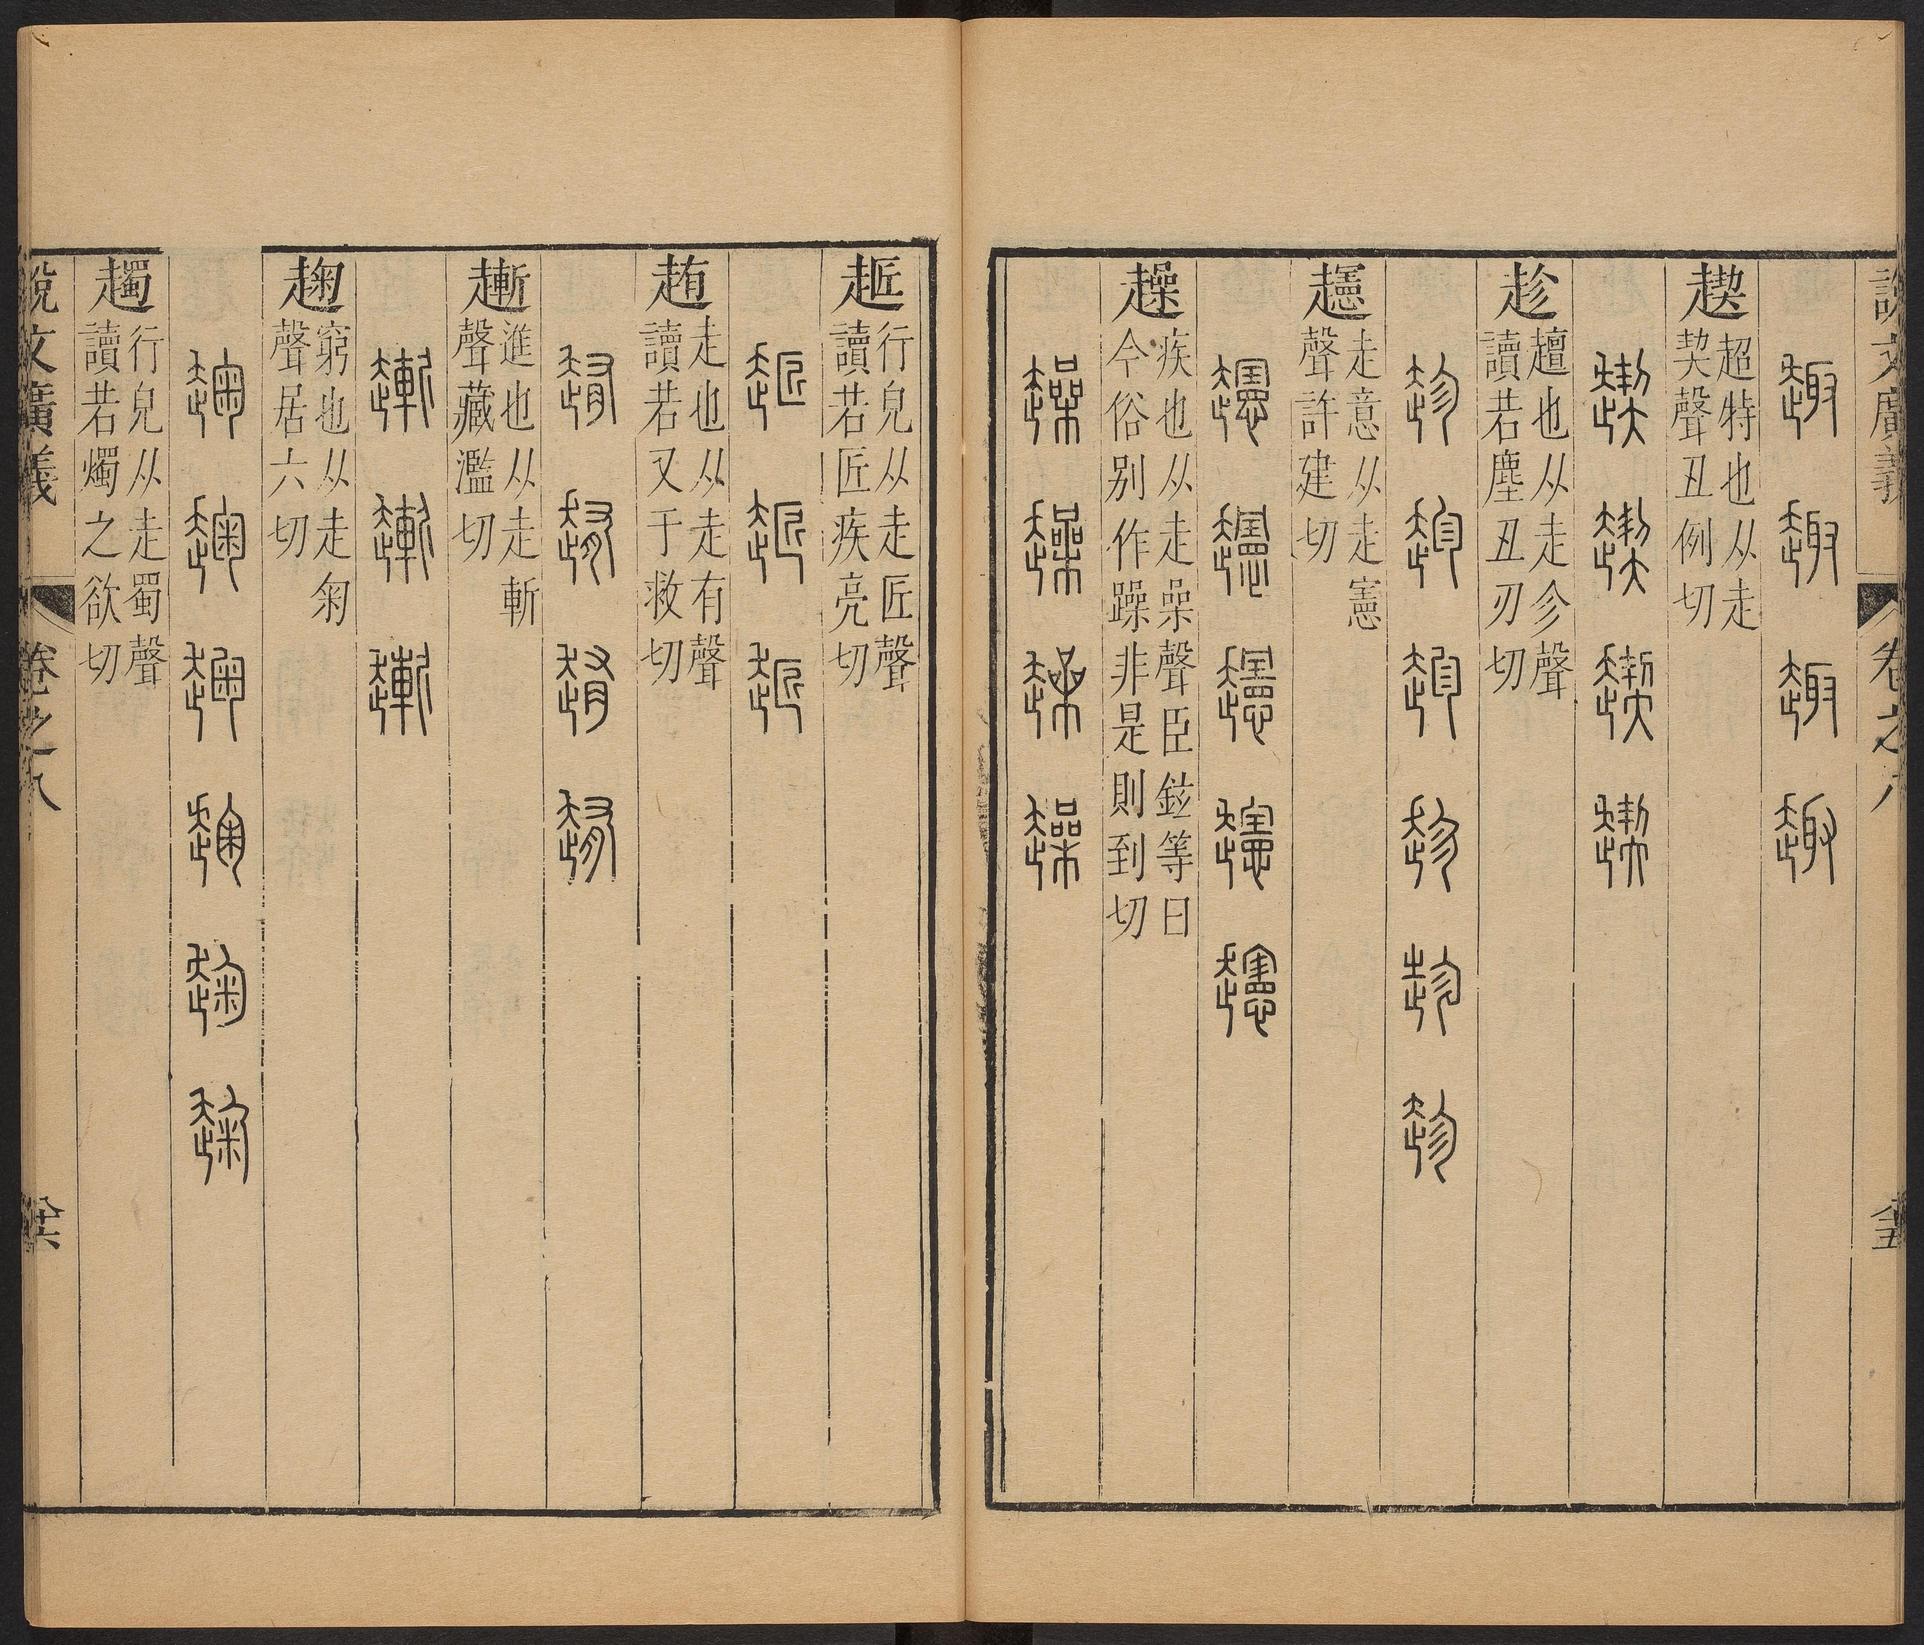 說文廣義 卷之八
趣 趣 趣 趣
䟷 超特也从走
契聲丑例切
䟷 䟷 䟷 䟷
趁 趲也从走㐱聲
讀若塵丑刃切
趁 趁 趁 趁 趁 趁
走意从走憲
聲許建切
趮 疾也从走喿聲臣鉉等曰
今俗别作躁非是則到切
趮 趮 趮 趮
行皃从走匠聲
讀若匠疾亮切
走也从走有聲
讀若又于救切
進也从走斬
聲藏濫切
窮也从走匊
聲居六切
趜 趜 趜 趜 趜 趜
行皃从走蜀聲
讀若燭之欲切
說文廣義 卷之八